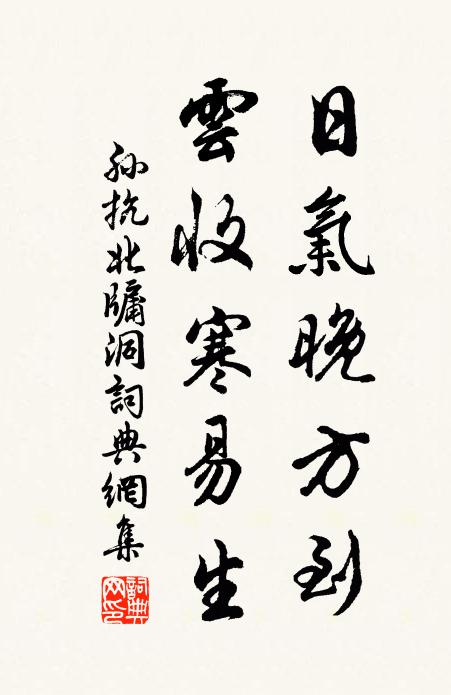 日氣晚方到
雲收寒易生
孫抗北牖洞詞典網集
詞典网印